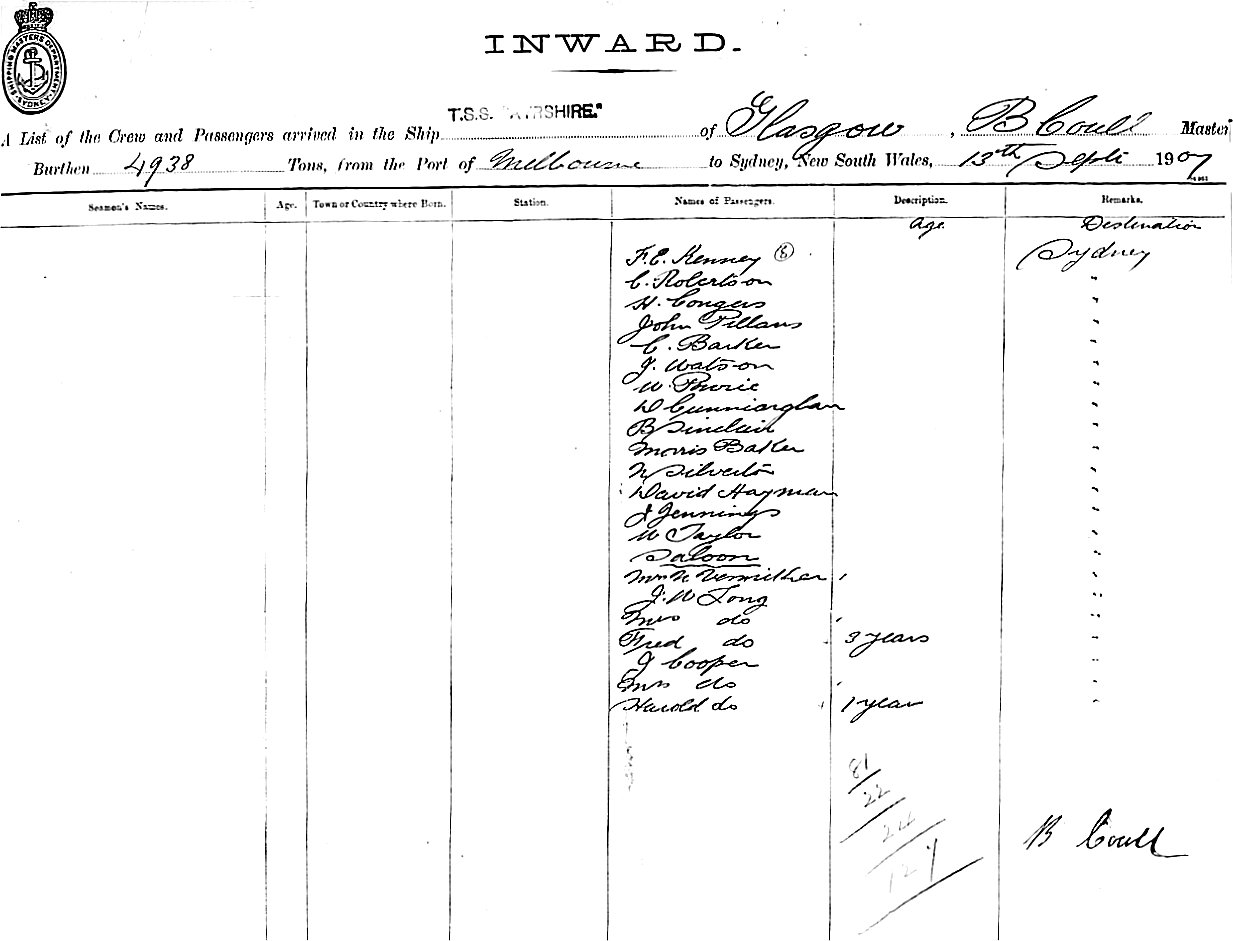 SHIPPING MASTERS DEPARTMENT
SYDNEY
INWARD.
T.S.S. "AYRSHIRE."
A List of the Crew and Passengers arrived in the Ship of Glasgow, B Coull Master
Burthen 4938 Tons, from the Port of Melbourne to Sydney, New South Wales, 13th Sept 1907
Seamen's Names. Age. Town or Country where Born. Station. Names of Passengers. Description. Remarks.
Age. Destination
F. E. Kenney 8 Sydney
C. Robertson "
H. Congers "
John Pillans "
C. Barker "
J. Watson "
W. Powrie "
D Cunningham "
B Sinclair "
Morris Baker "
N Silverton "
David Hayman "
J Jennings "
W Taylor "
Saloon "
Mrs N "
J. W Long "
Mrs do "
Fred do 3 years "
J Cooper "
Mrs do "
Harold do 1 year "
81
22
24
127
B Coull